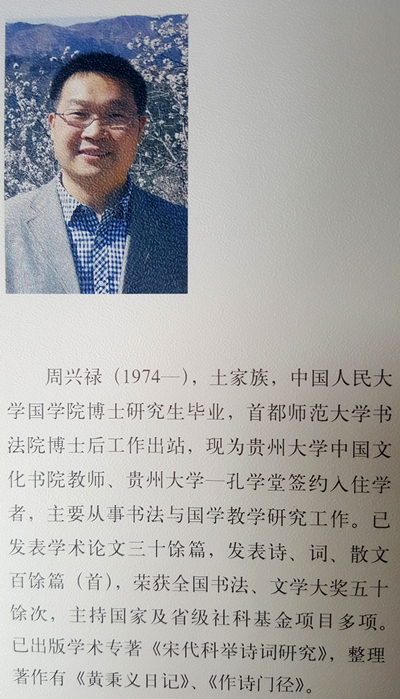 周兴禄（1974—），土家族，中国人民大
学国学院博士研究生毕业，首都师范大学书
法院博士后工作出站，现为贵州大学中国文
化书院教师、贵州大学—孔学堂签约入住学
者，主要从事书法与国学教学研究工作。已
发表学术论文三十馀篇，发表诗、词、散文
百馀篇（首），荣获全国书法、文学大奖五十
馀次，主持国家及省级社科基金项目多项。
已出版学术专著《宋代科举诗词研究》，整理
著作有《黄秉义日记》、《作诗门径》。